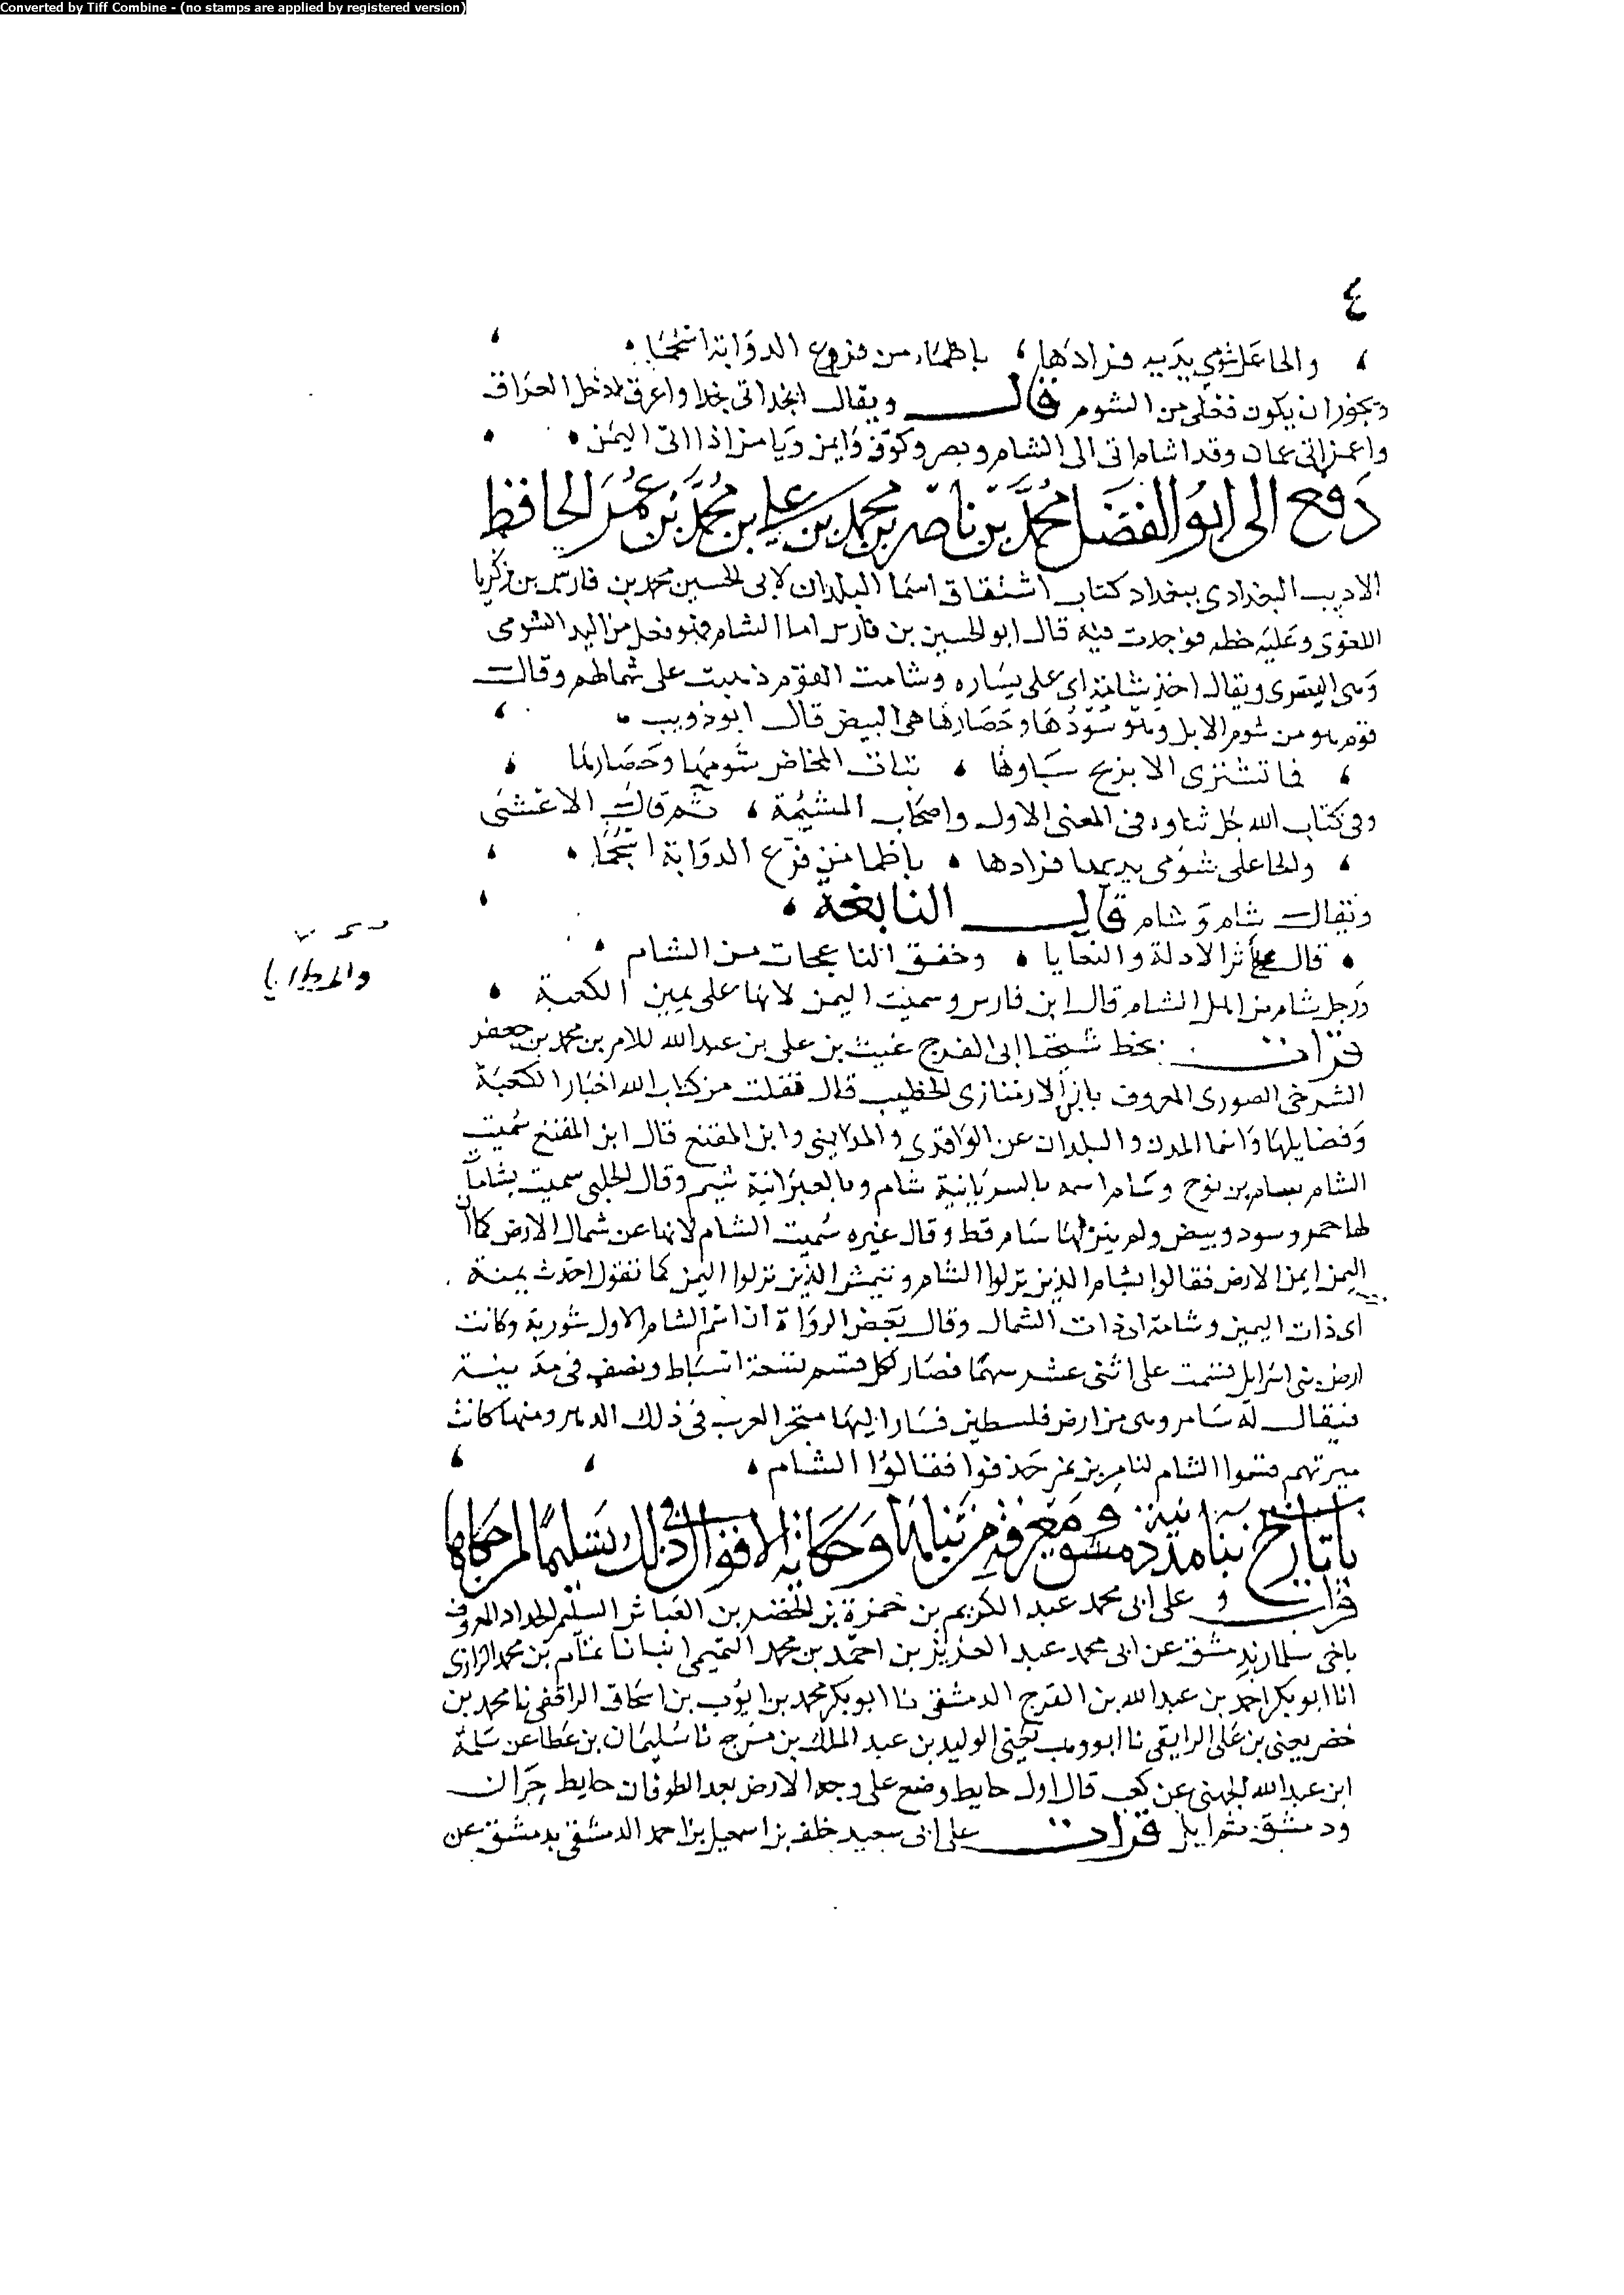 Converted by Tiff Combine - (no stamps are applied by registered version)
٤
بدیه فزادها باظماء من فروع الدوابة اسحما
ويجوز ان يكون فعلى من الشوم قال ويقال انجد اتى نجدا واعرق دخل العراق
واعمن اتى عمان وقد اشام اتى الى الشام وبصر وكوف وايمن ويامن اذا اتى اليمن
دفع الى ابو الفضل محمد بن ناصر بن محمد بن علي بن محمد بن عمر الحافظ
الاديب البغدادى ببغداد كتاب اشتقاق اسما البلدان لابى الحسين محمد بن فارس بن زكريا
اللغوى وعليه خطه فوجدت فيه قال ابو الحسين بن فارس اما الشام فهو فعل من اليد الشومى
وهى اليسرى ويقال اخذ شامة اى على يساره وشامت القوم ذهبت على شمالهم وقالت
قوم هو من شوم الابل وهو سودها وحضارها هى البيض قال ابو ذويب
فما تشترى الا بربح سباوها بنات المخاض شومها وحضارها
وفى كتاب الله جل ثناوه فى المعنى الاول واصحاب المشيمة ثم قال الاعشى
على شومى يديها فزادها باظما من فرع الدوابة اسحما
ويقال شام وشام قال النابغة
على اثر الادلة والبغايا وخفق الناعجات من الشام
ورجل شام من اهل الشام قال ابن فارس وسميت اليمن لانها على يمين الكعبة
قرات بخط شيخنا ابى الفرج غيث بن على بن عبد السلام بن محمد بن جعفر
الصورى المعروف بابن الارمنازى الخطيب قال نقلت من كتاب اخبار الكعبة
وفضايلها واسما المدن والبلدان عن الواقدى والمداينى وابن المقفع قال ابن المقفع سميت
الشام بسام بن نوح وسام اسمه بالسريانية شام وبالعبرانية شيم وقال الكلبى سميت بشامات
لها حمر وسود وبيض ولم ينزلها سام قط وقال غيره سميت الشام لانها عن شمال الارض كما ان
اليمن ايمن الارض فقالوا تشام الذين نزلوا الشام وتيمن الذين نزلوا اليمن كما تقول اخذت يمنة
اى ذات اليمين وشامة اى ذات الشمال وقال بعض الرواة ان اسم الشام الاول سورية وكانت
ارض بنى اسرايل قسمت على اثنى عشر سهما فصار لكل قسم تسعة اسباط ونصف فى مدينة
فيقال له سامر وهى من ارض فلسطين فسار اليها متجر العرب فى ذلك الدهر ومنها كانت
ميرتهم فسموا الشام حذفوا فقالوا الشام
باب تاريخ بنا مدينة دمشق ومعرفة من بناها وحكاية الاقوال فى ذلك تسليما لمن حكاها
قرات على ابى محمد عبد الكريم بن حمزة بن الخضر بن العباس السلمى الحداد المعروف
بدمشق عن ابى محمد عبد العزيز بن احمد بن محمد التميمى انبانا تمام بن محمد الرازى
انا ابو بكر احمد بن عبد الله بن الفرج الدمشقى نا ابو بكر محمد بن ايوب بن اسحاق الرافقى نا محمد بن
خضر يعنى بن على الرافقى نا ابو وهب يعنى الوليد بن عبد الملك بن مسرح نا سليمان بن عطا عن سلمة
ابن عبد الله الجهنى عن كعب قال اول حايط وضع على وجه الارض بعد الطوفان حايط حران
ودمشق ثم بابل قرات على ابى سعيد خلف بن اسمعيل بن احمد الدمشقى بدمشق عن